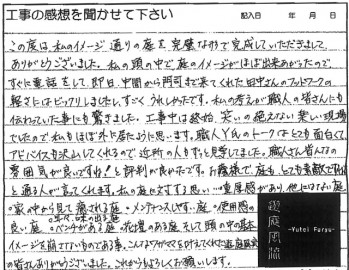 工事の感想を聞かせて下さい
記入日 年 月 日
この度は、私のイメージ通りの庭を完璧な形で完成していただきまして
ありがとうございました。私の頭の中で庭のイメージがほぼ出来あがったので、
すぐに電話をして、即日、中間から門司まで来てくれた田中さんのフットワークの
軽さにはビックリしましたし、すごくうれしかったです。私の考えが職人の皆さんにも
伝わっていた事にも驚きました。工事中は終始、笑いの絶えない楽しい現場
でしたので、私もほぼ外に居たように思います。職人Y氏のトークはとても面白くて
アドバイスも沢山してくれるので、近所の人もずっと見てました。職人さん皆んなの
雰囲気が良いですね!と評判が良かったです。お蔭様で、庭も、とても素敵で
と通る人が言ってくれます。私の庭に対する思い…重厚感があり、他にはない庭
家の中から見て癒される庭 メンテナンスしやすい庭 使用感の
良い庭 ベンチがある庭 花壇のある庭 そして頭の中の
イメージを崩さないものである事、こんなワガママを叶えてくれた遊庭風流
の皆さんありがとうございました。これからもよろしくお願いします。
遊庭風流
-Yutei Furyu-